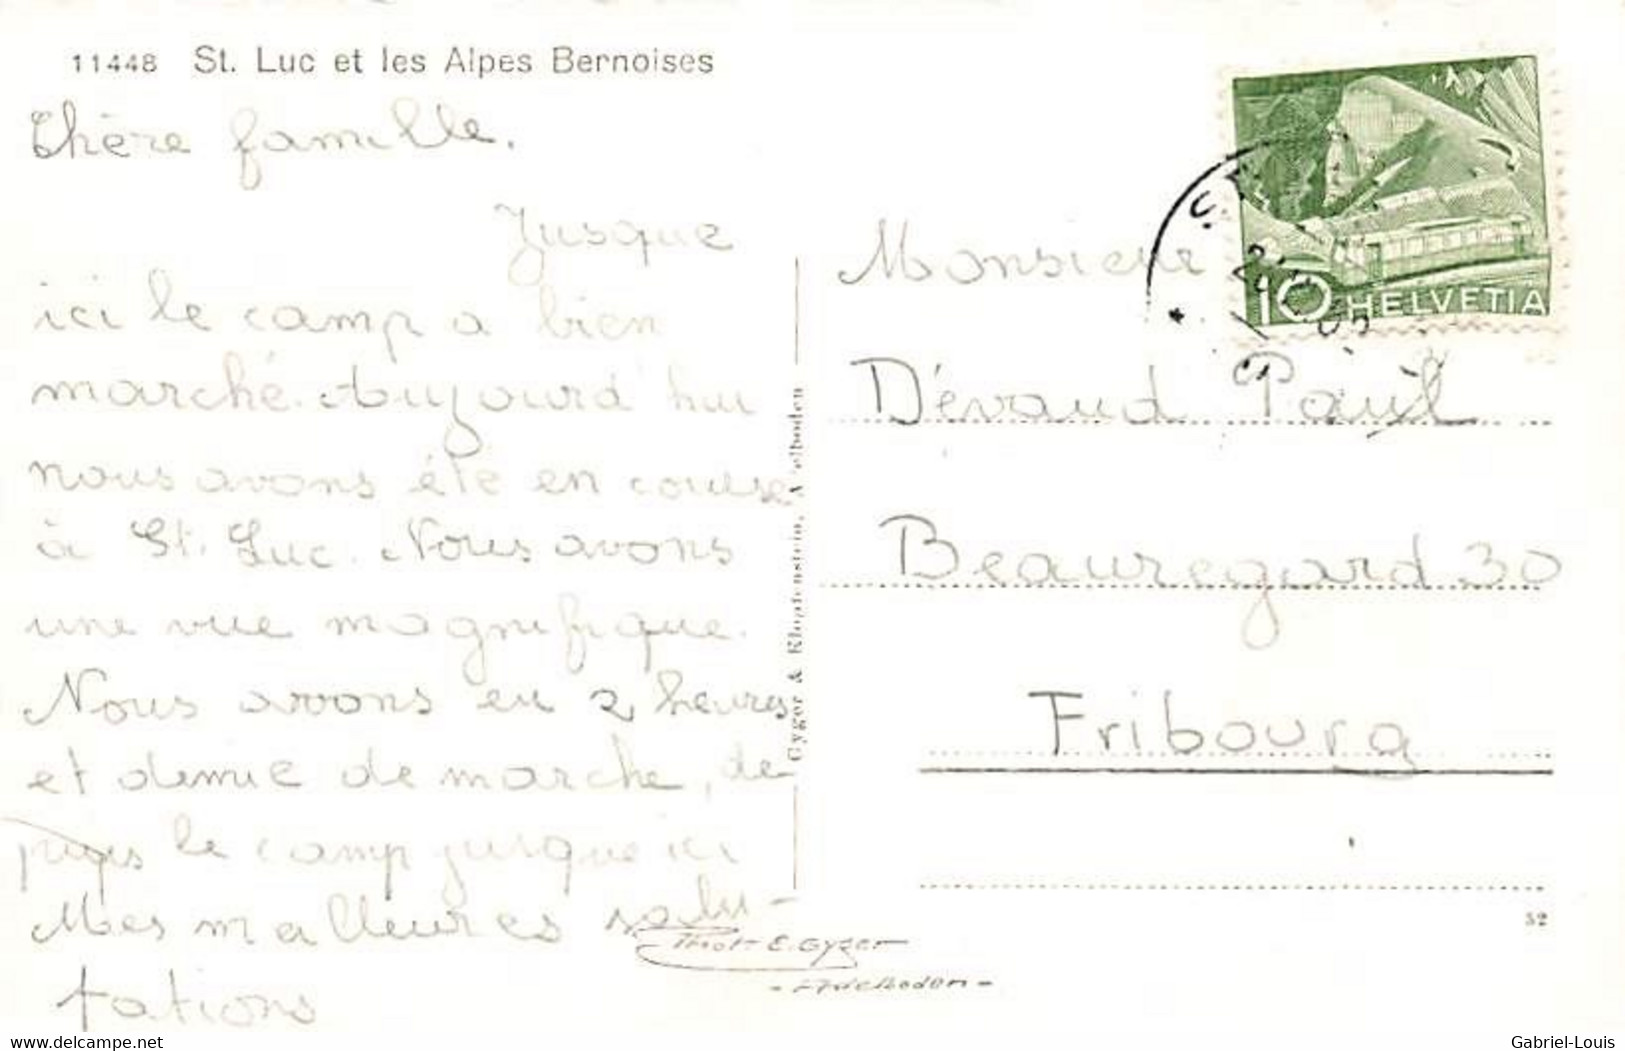 11448 St. Luc et les Alpes Bernoises
Chère famille.
Jusque
ici le camp a bien
marché. Aujourd'hui
nous avons été en course
à St. Luc. Nous avons
une vue magnifique.
Nous avons eu 2 heures
et demie de marche, de
puis le camp jusque ici
Mes meilleures salu-
tations
Gyger & Klopfenstein, Adelboden
Phot. E. Gyger
- Adelboden -
10 HELVETIA
Monsieur
Dévaud Paul
Beauregard 30
Fribourg
52
delcampe.net
Gabriel-Louis